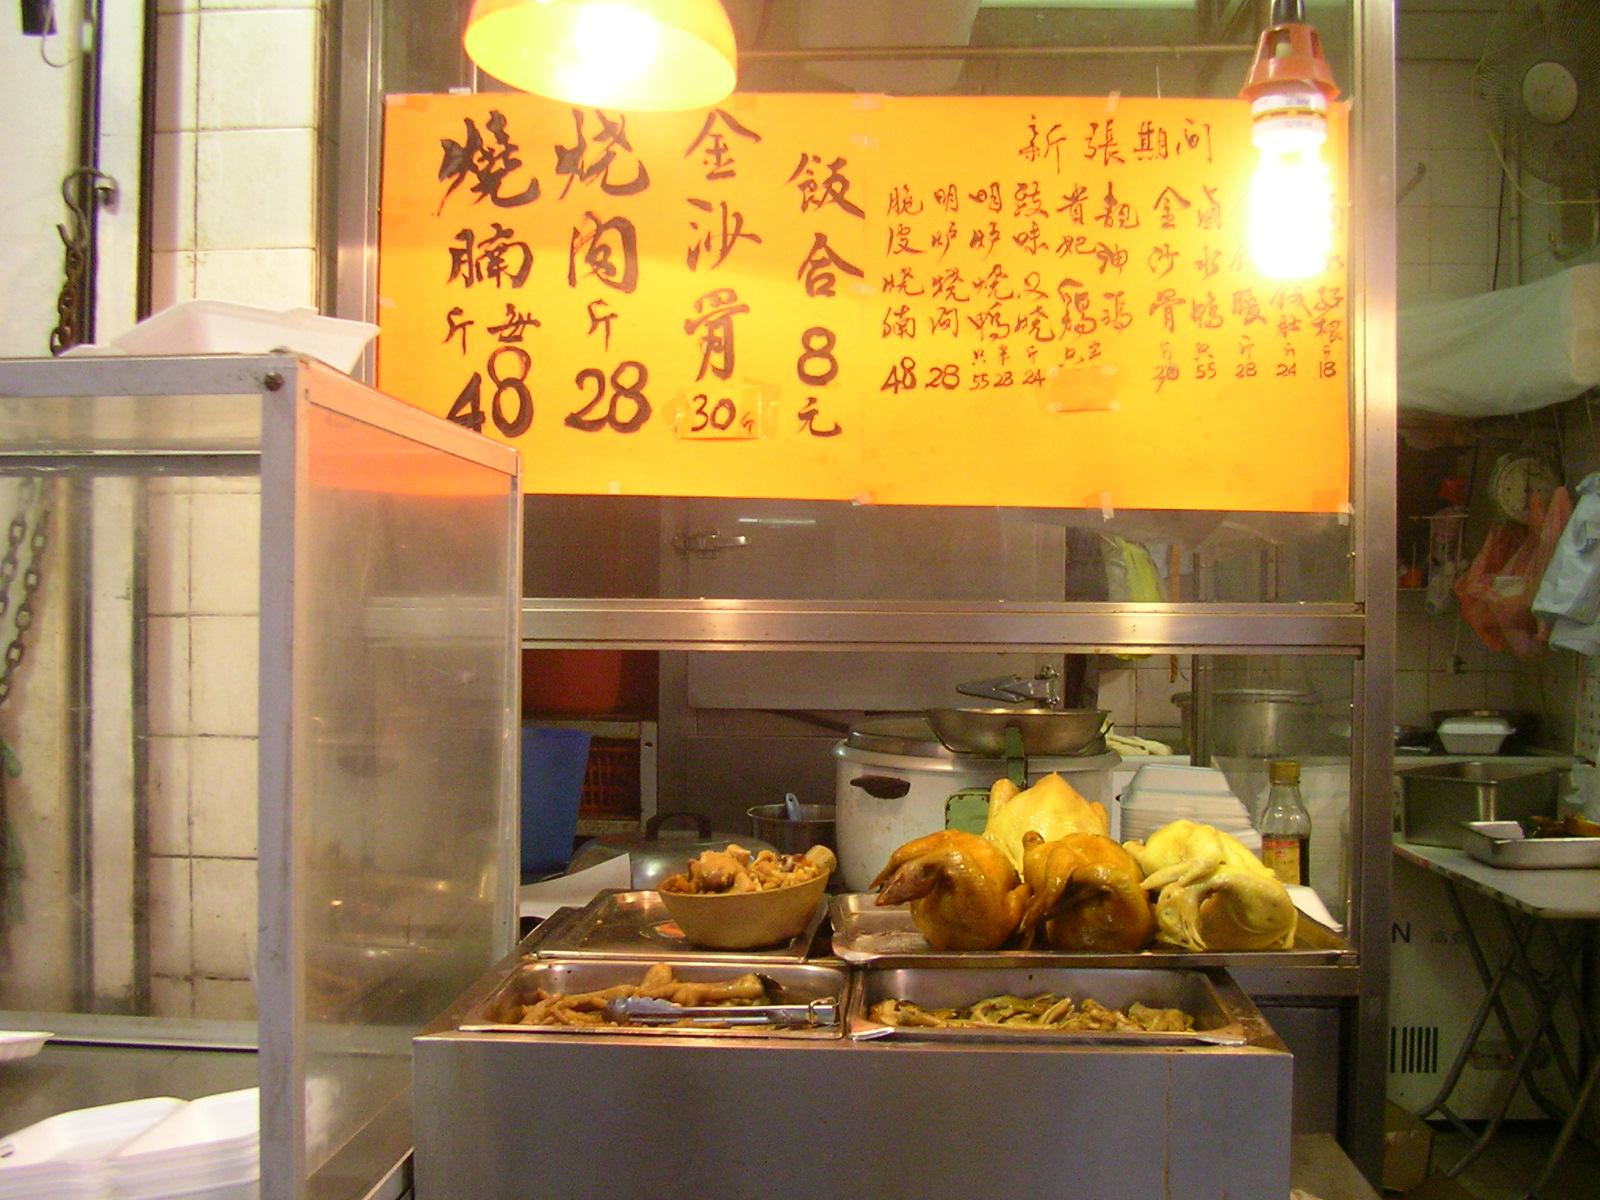 燒腩 斤 每 48
烧肉 斤 28
金沙骨 30斤
飯合8元
新張期间
脆皮烧腩 48
明炉烧肉 28
明炉烧鸭 只 半 55 28
豉味叉烧 斤 24
貴妃鷄 只
靓油鸡
金沙骨 斤
卤水鸭 只 55
斤 28
斤 24
斤 18
N